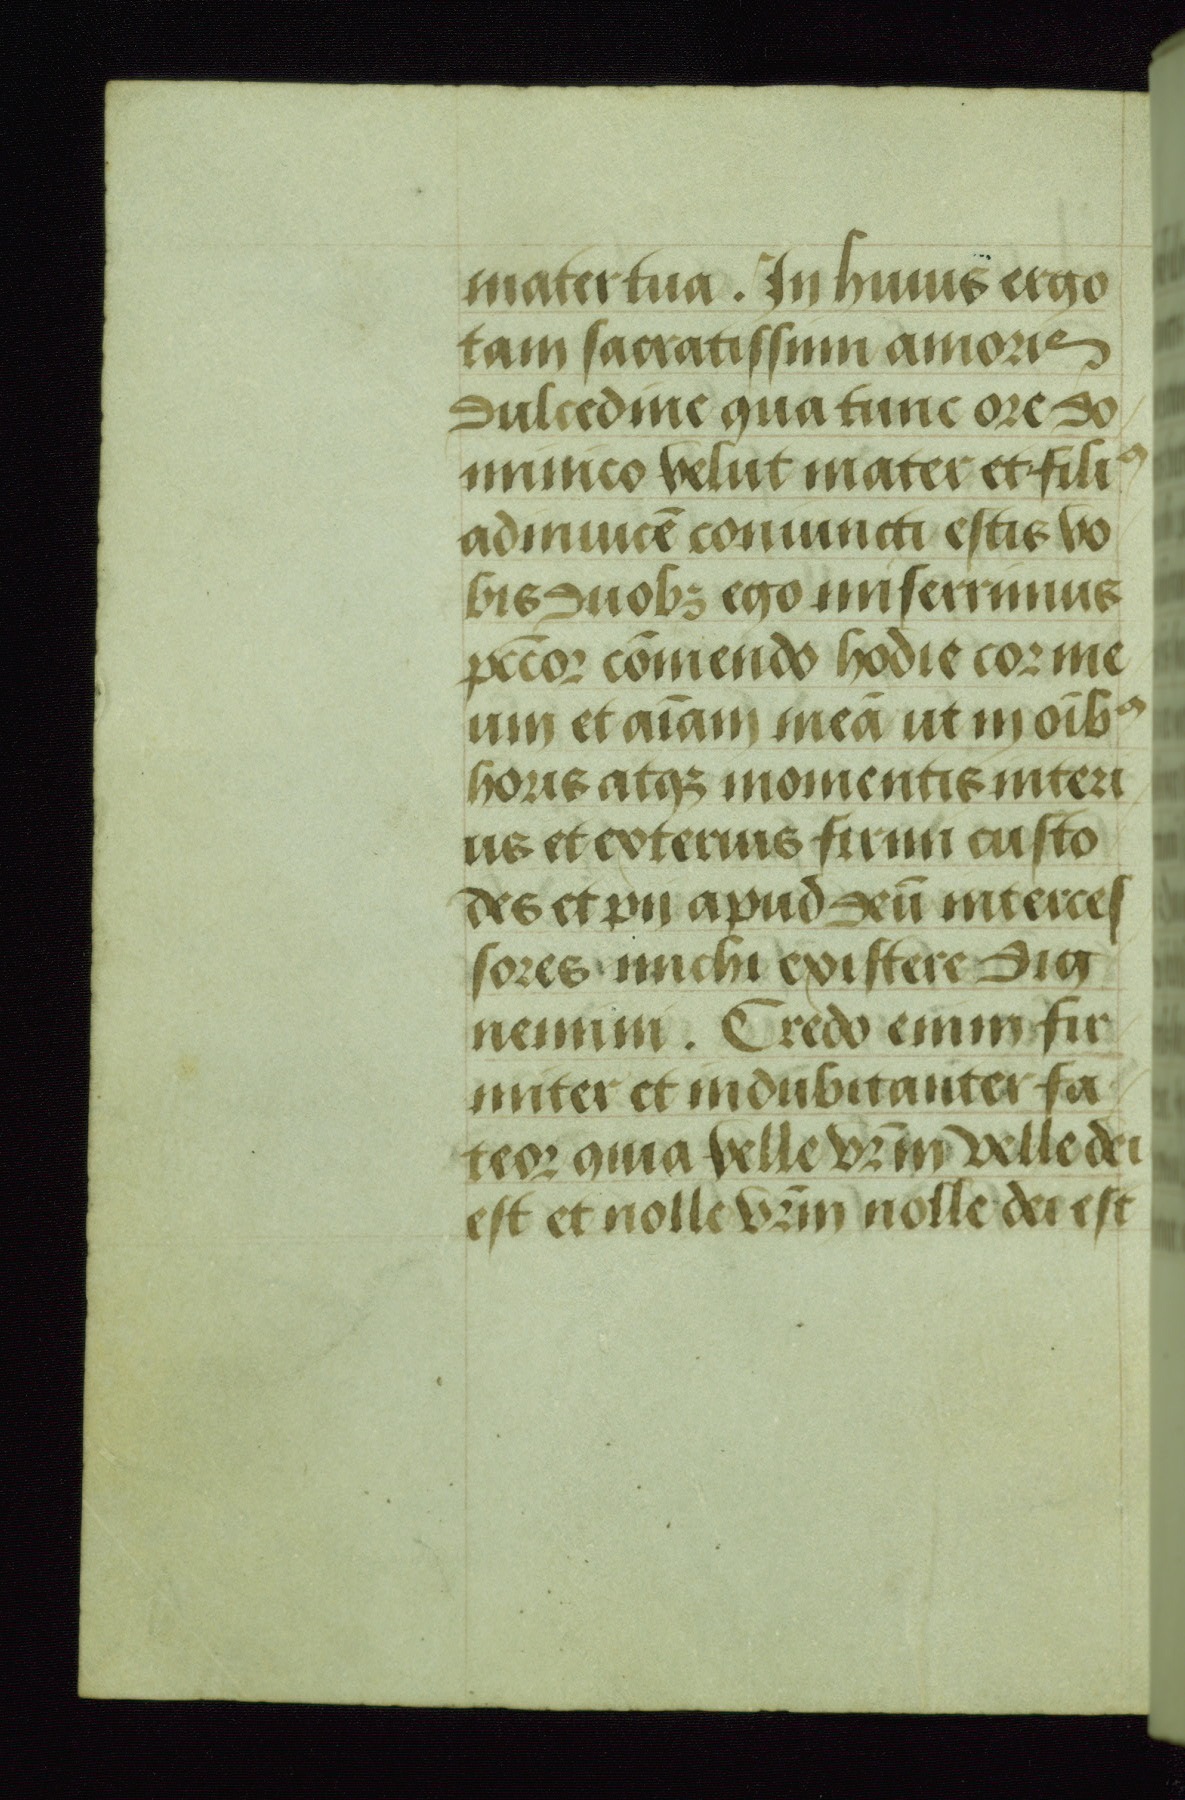 mater tua. In huius ergo
tam sacratissimi amoris
dulcedine qua tunc ore do
minico velut mater et filiꝰ
adinuicē coniuncti estis vo
bis duobꝫ ego miserrimus
pctōr cōmendo hodie cor me
um et aīam meā ut in oībꝰ
horis atqꝫ momentis interi
us et exterius firmi custo
des et pii apud deū interces
sores michi existere dig
nemini. Credo enim fir
miter et indubitanter fa
teor quia velle vr̄m velle dei
est et nolle vr̄m nolle dei est